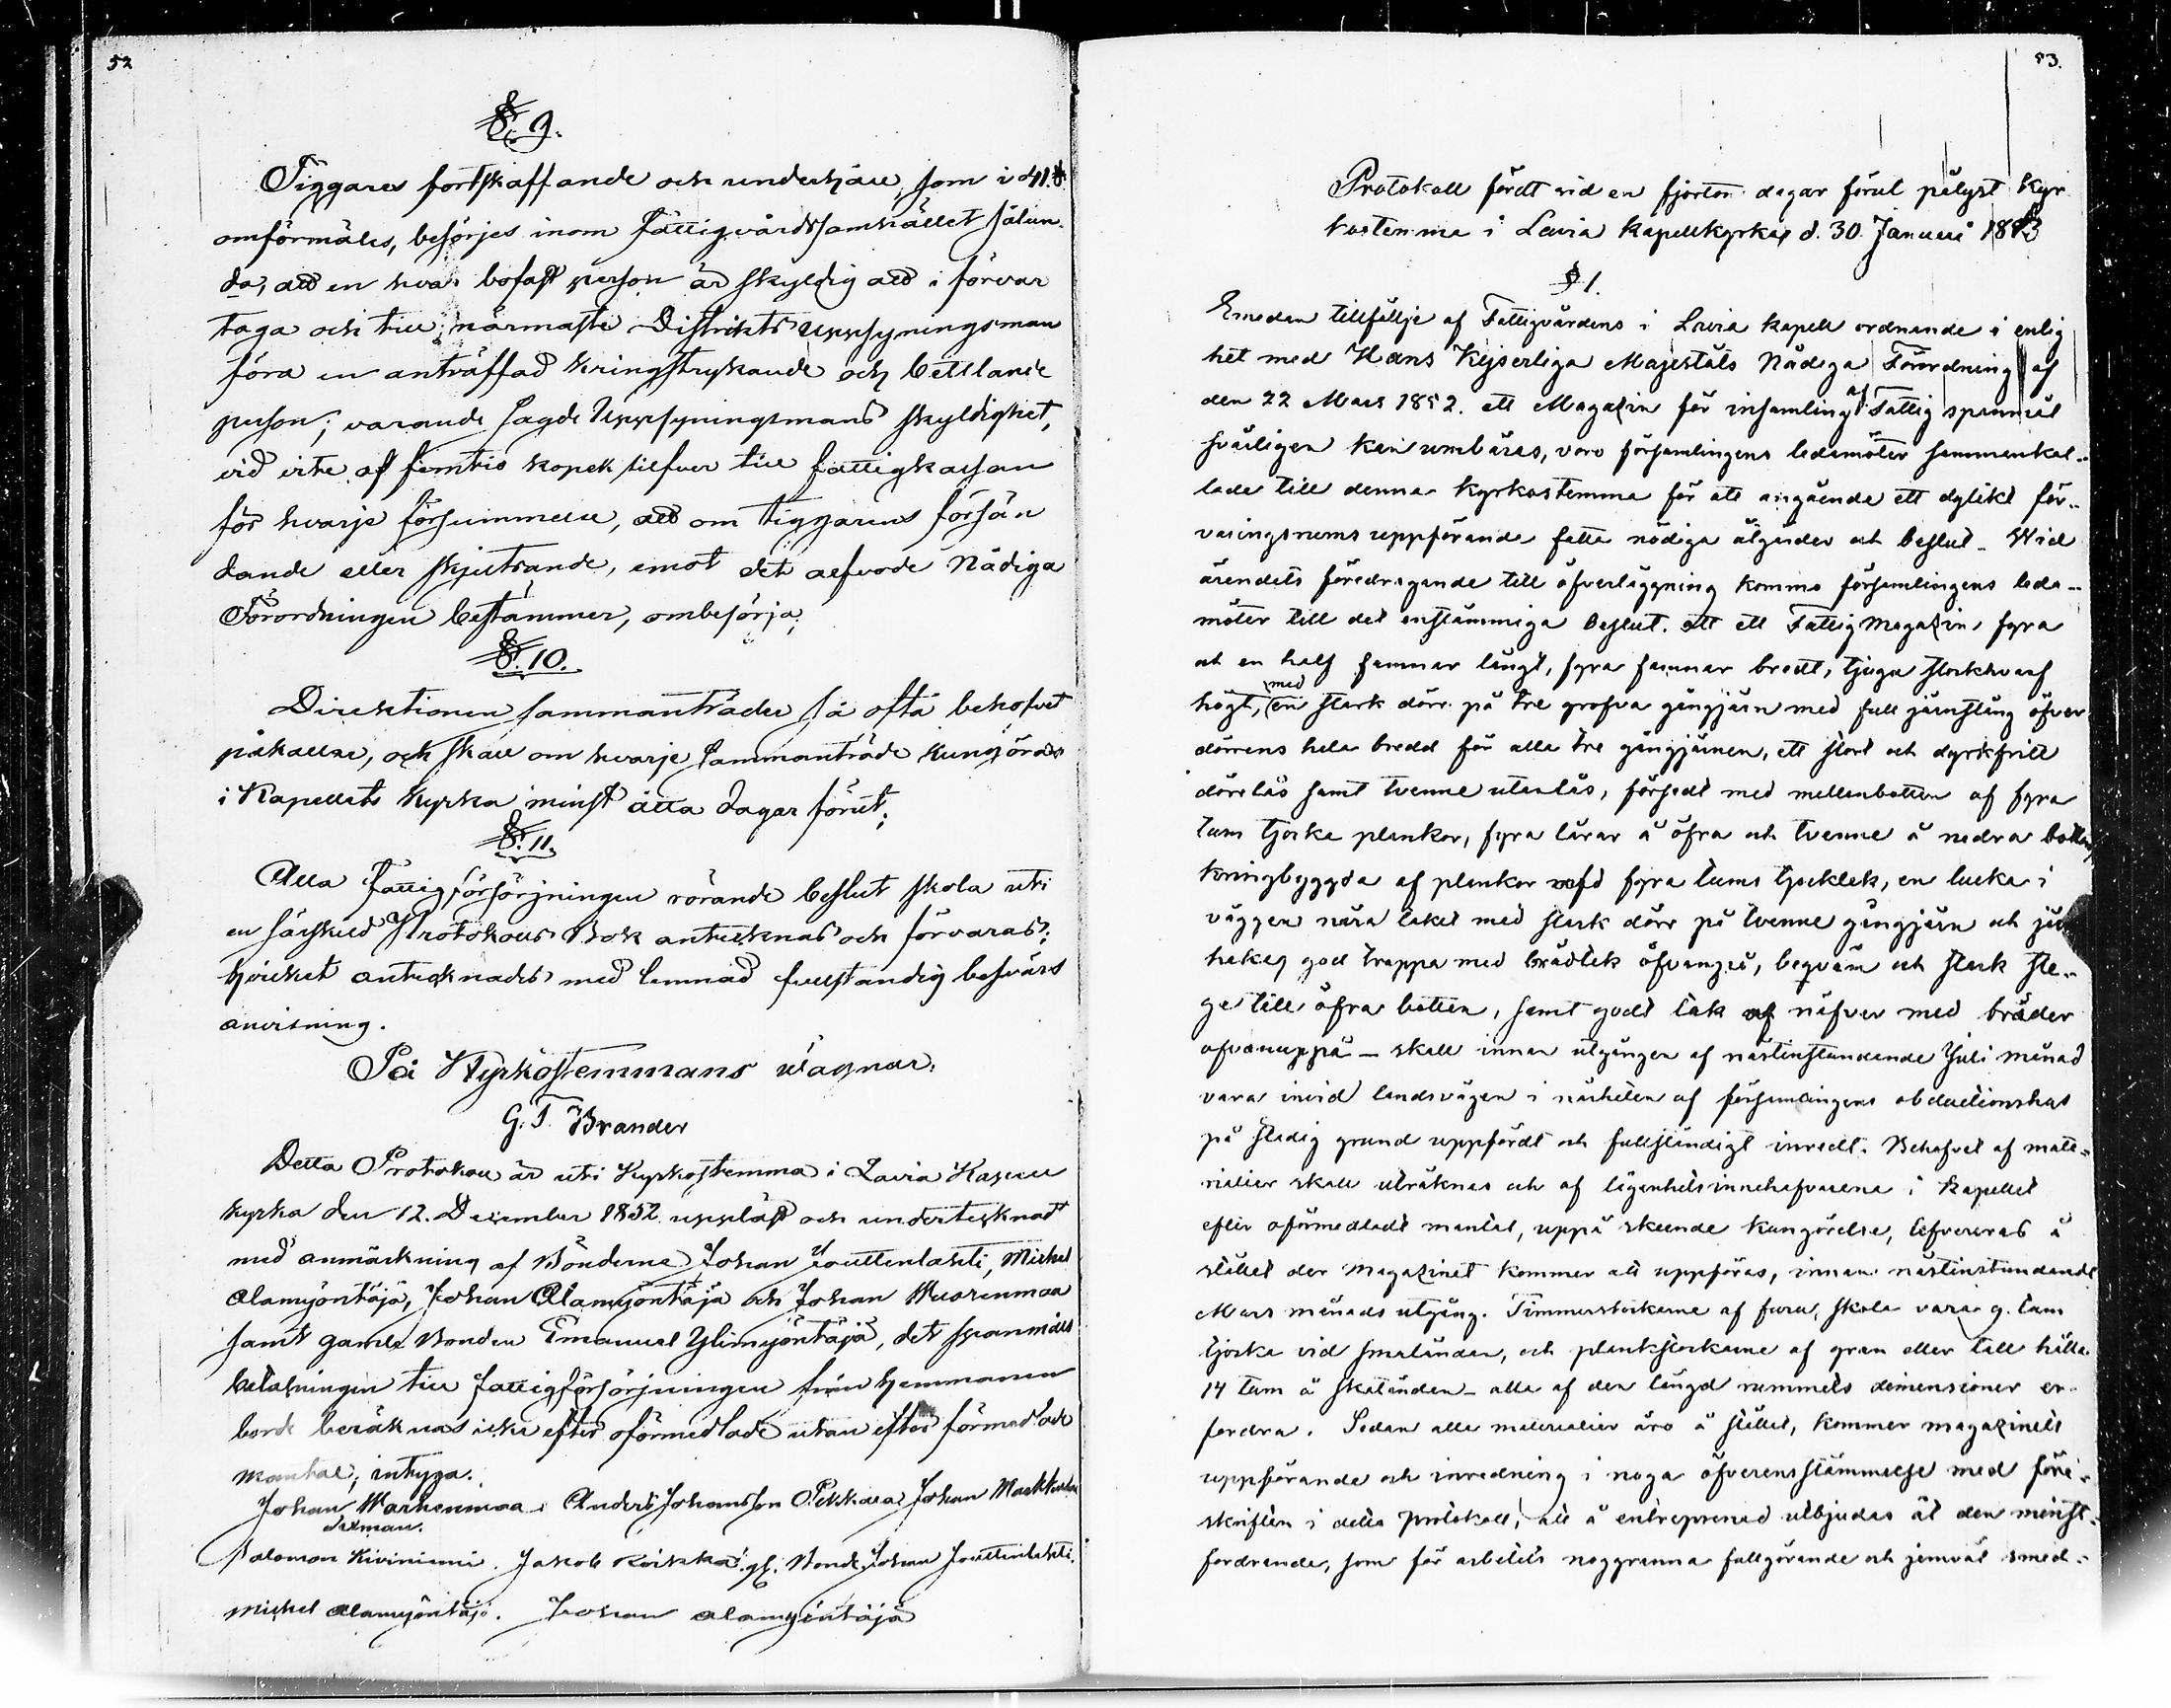 52
§. 9.
Tiggares fortskaffande och underhåll, som i 41.§.
omförmäles, besörjes inom Fattigvårdssamhället sålun-
da, att en hvar bofast person är skyldig att i förvar
taga och till närmaste Distrikts Uppsyningsman
föra en anträffad kringstrykande och bettlande
person; varande sagde Uppsyningsmans skyldighet,
vid vite af femtio kopek silfver till fattigkassan
för hvarje försummelse, att om tiggarens försän
dande eller skjutsande, emot det arfvode Nådiga
Förordningen bestämmer, ombesörja;
§. 10.
Direktionen sammanträder så ofta behofvet
påkallar, och skall om hvarje sammanträde kungöras
i Kapellets Kyrka minst åtta dagar förut;
§. 11.
Alla Fattigförsörjningen rörande beslut skola uti
en särskild Protokolls Bok antecknas och förvaras;
hvilket antecknades med lemnad fullständig besvärs
anvisning.
På Kyrkostemmans vägnar,
G. T. Brander
Detta Protokoll är uti Kyrkostemma i Lavia Kapell
kyrka den 12. December 1852 uppläst och undertecknadt
med anmärkning af Bönderne Johan Jouttenlahti, Michel
Alamyöntäjä, Johan Alamyöntäjä och Johan Vuorenmaa
samt gamle Bonden Emanuel Ylimyöntäjä, det spanmåls
betalningen till fattigförsörjningen från hemmanen
borde beräknas icke efter oförmedlade utan efter förmedlade
mantal; intyga.
Johan Warhenmaa Anders Johansson Pekkala Johan
Sexman.
Salomon Kiviniemi. Jakob Koikka. gl. Bonde Johan Jouttenlahti.
Michel Alamyöntäjä. Johan Alamyöntäjä
53.
Protokoll fördt vid en fjorton dagar förut pålyst Kyr
kostemma i Lavia Kapellkyrka d. 30 Januari 1853
§ 1.
Emedan tillfölje af Fattigvårdens i Lavia kapell ordnande i enlig
het med Hans Kejserliga Majestäts Nådiga Förordning af
den 22 Mars 1852. ett Magazin för insamling af Fattig spanmål
svårligen kan umbäras, voro församlingens ledamöter sammankal-
lade till denna Kyrkostemma för att angående ett dylikt för-
varingsrums uppförande fatta nödiga åtgärder och beslut. Wid
ärendets föredragande till öfverläggning kommo församlingens leda-
möter till det enstämmiga beslut. att ett Fattig Magazin, fyra
och en half famnar långt, fyra famnar bredt, tjugu stockhvarf
högt, med en stark dörr på tre grofva gångjärn med full järnstång öfver
dörrens hela bredd för alla tre gångjärnen, ett stort och dyrkfritt
dörrlås samt tvenne utanlås, försedt med mellanbotten af fyra
tum tjocka plankor, fyra lårar å öfra och tvenne å nedra botten,
kringbyggda af plankor med fyra tums tjocklek, en lucka i
väggen nära taket med stark dörr på tvenne gångjärn och järn
hakeq god trappa med brädtak öfvanpå, beqväm och stark ste-
ge till öfra botten, samt godt tak af näfver med bräder
ofvanuppå – skall innan utgången af nästinstundande Juli månad
vara invid landsvägen i närheten af församlingens obductionshus
på stadig grund uppfördt och fullständigt inredt. Behofvet af mate-
rialier skall uträknas och af lägenhetsinnehafvarena i kapellet
efter oförmedladt mantal, uppå skeende kungörelse, lefvereras å
stället der Magazinet kommer att uppföras, innan nästinstundande
Mars månads utgång. Timmerstockarne af furu, skola vara 9. tum
tjocka vid smaländan, och plankstockarne af gran eller tall hålla
14 tum å skatändan – alla af den längd rummets dimensioner er-
fordra. Sedan alla materialier äro å stället, kommer magazinets
uppförande och inredning i noga öfverensstämmelse med före-
skriften i detta protokoll, att å entreprenad utbjudas åt den minst-
fordrande, som för arbetets noggranna fullgörande och jemväl smed-